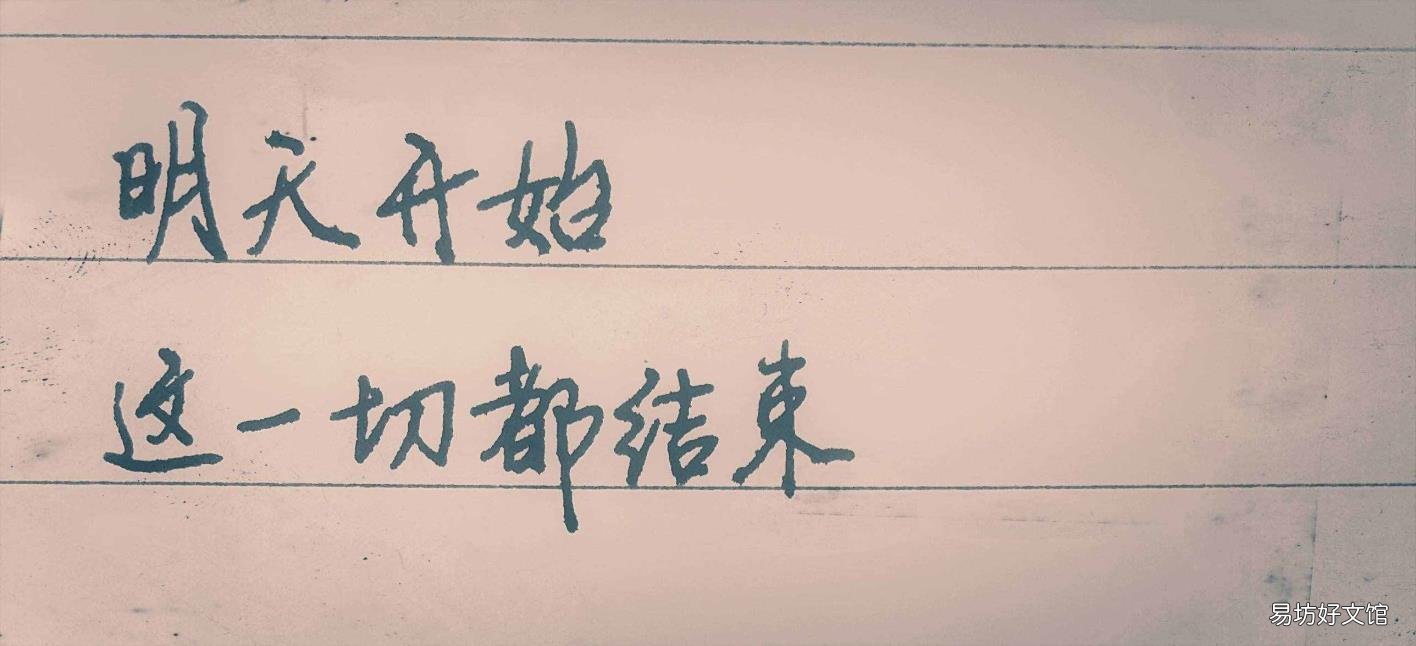 明天开始
这一切都结束
易坊好文馆